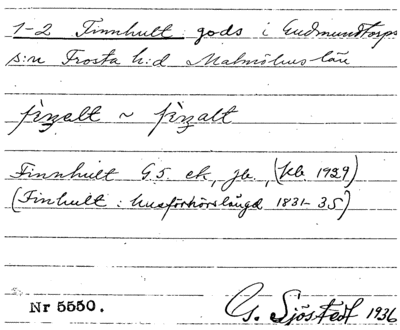 1-2 Finnhult gods i Gudmundtorps
s:n Frosta h:d Malmöhus län
~
Finnhult G.5 ek, jb., (kb. 1929)
(Finhult : husförhörslängd 1831-35)
Nr 5550. G. Sjöstedt 1936